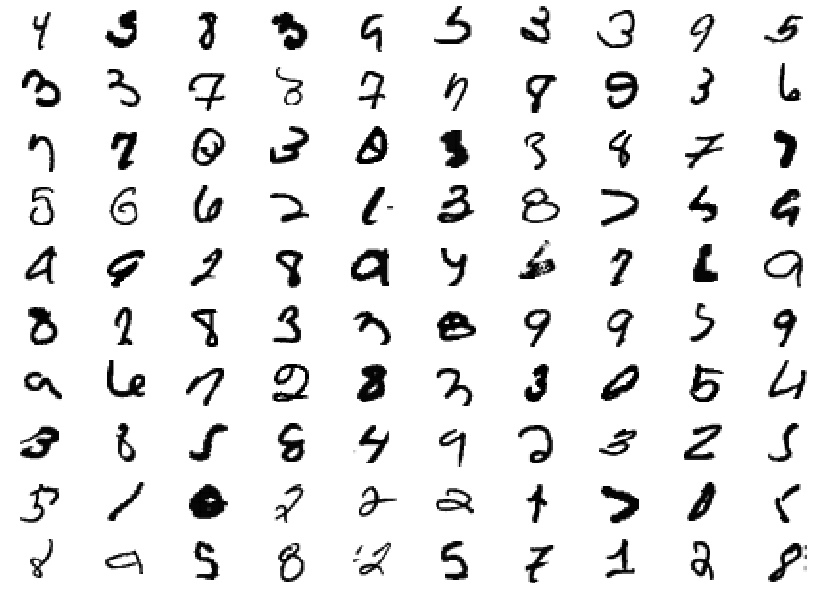 4 5 8 3 9 5 3 3 9 5
3 3 7 8 7 7 8 9 3 6
7 7 0 3 0 3 3 8 7 7
5 6 6 2 1 3 8 7 5 9
4 9 2 8 9 4 6 7 6 9
8 2 8 3 3 0 9 9 5 9
9 6 7 2 8 3 3 0 5 4
3 8 5 8 4 9 2 3 2 5
5 1 0 2 2 2 1 7 0 5
8 9 5 8 2 5 7 1 2 8